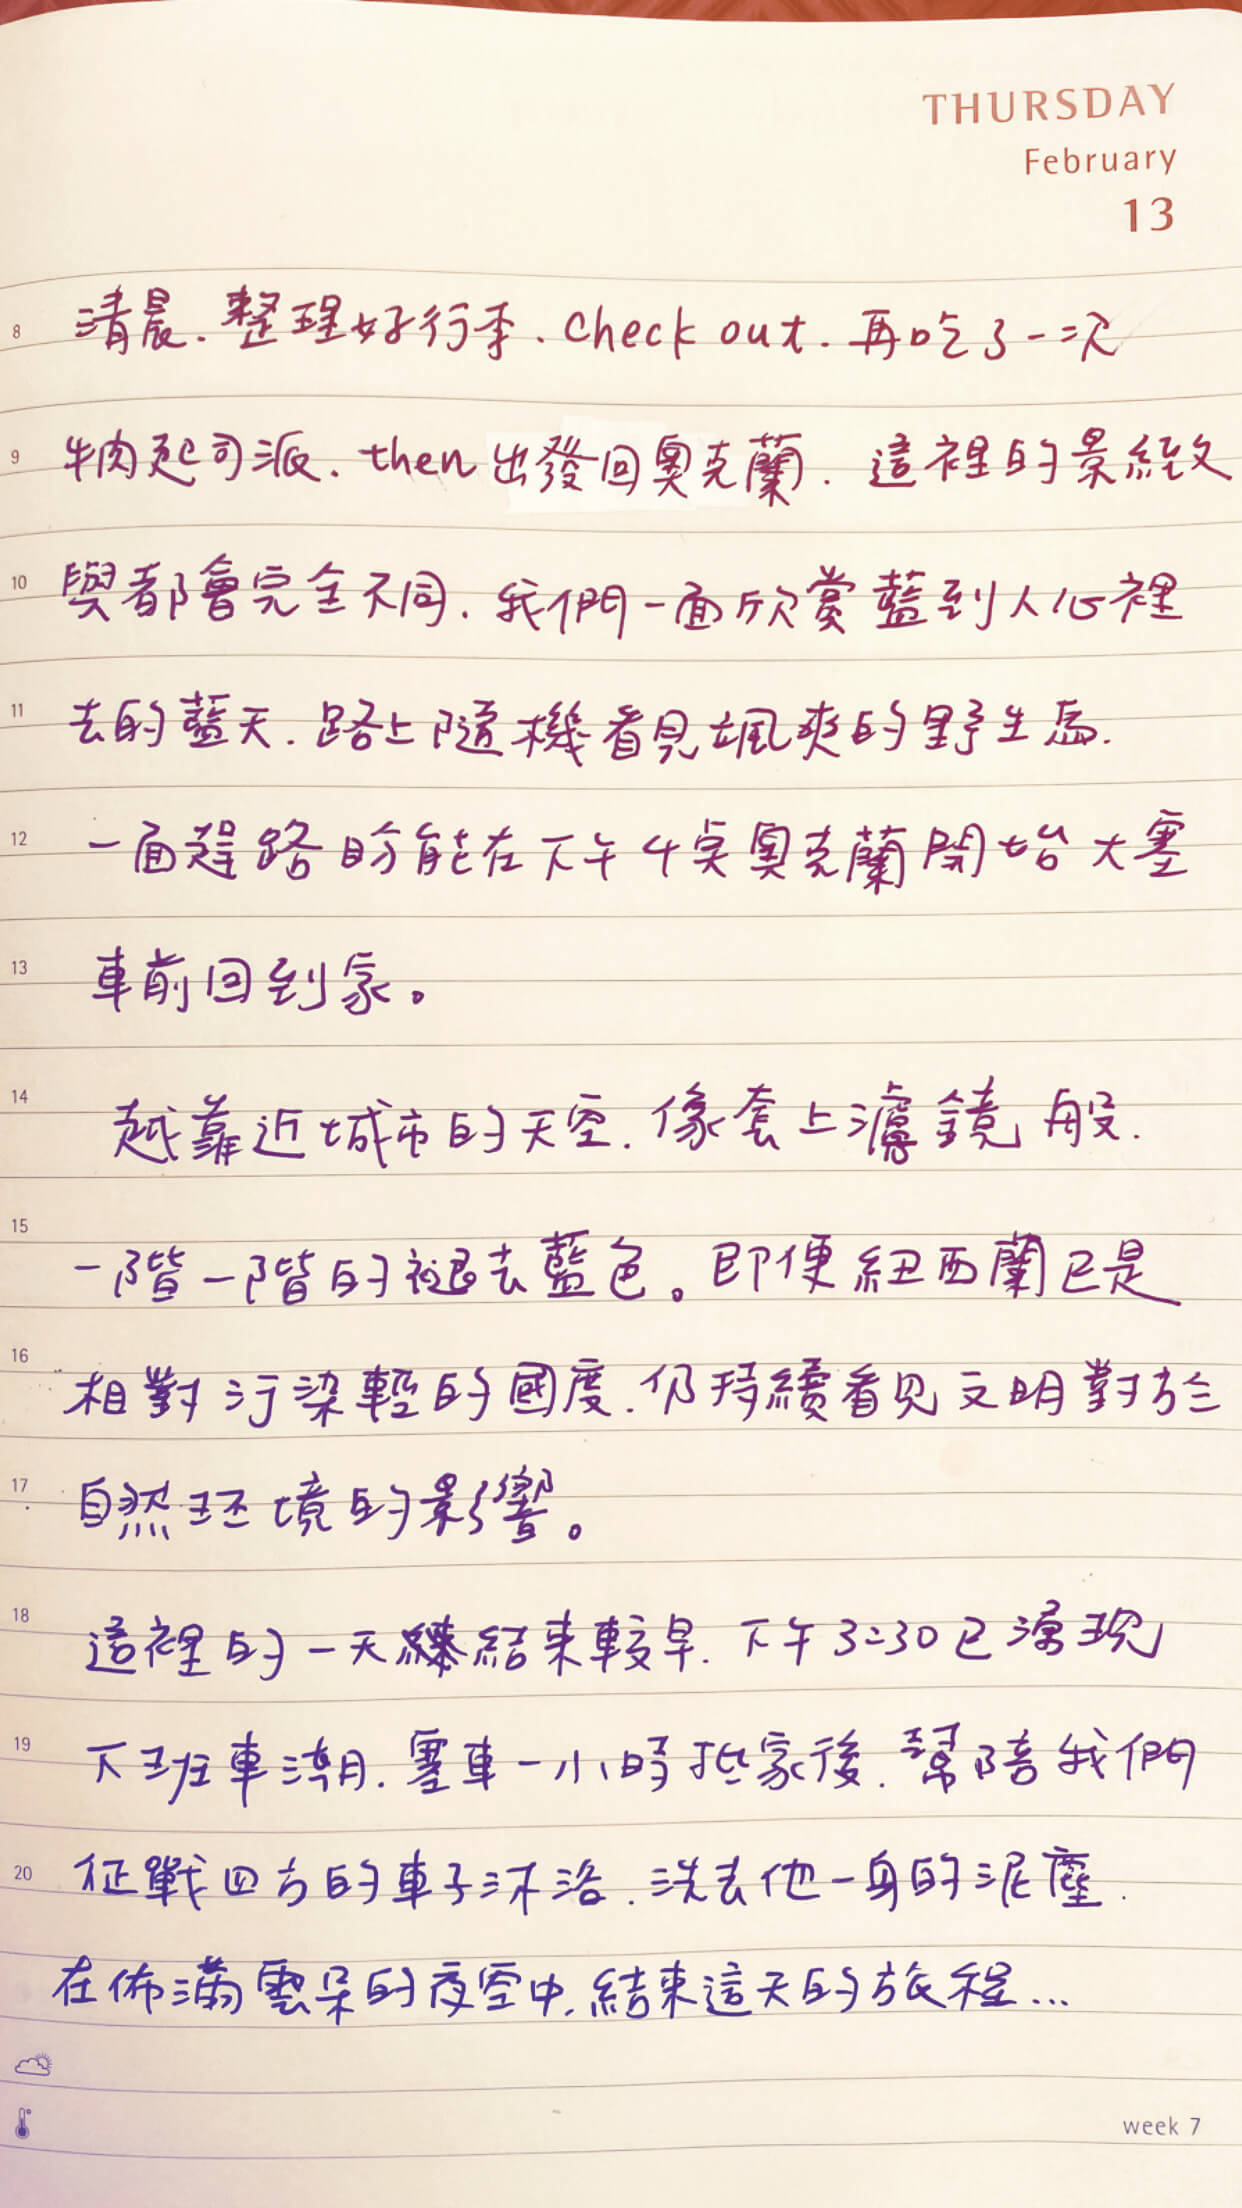 THURSDAY
February
13
8 清晨.整理好行李.check out.再吃了一次
9 牛肉起司派.then出發回奧克蘭.這裡的景緻
10 與都會完全不同.我們一面欣賞藍到人心裡
11 去的藍天.路上隨機看見颯爽的野生馬.
12 一面趕路盼能在下午4点奧克蘭開始大塞
13 車前回到家。
14 越靠近城市的天空.像套上濾鏡般.
15 一階一階的褪去藍色。即便紐西蘭已是
16 相對污染輕的國度.仍持續看見文明對於
17 自然环境的影響。
18 這裡的一天結束較早.下午3:30已湧現
19 下班車潮.塞車一小時抵家後.幫陪我們
20 征戰四方的車子沐浴.洗去他一身的泥塵.
在佈滿雲朵的夜空中.結束這天的旅程...
week 7